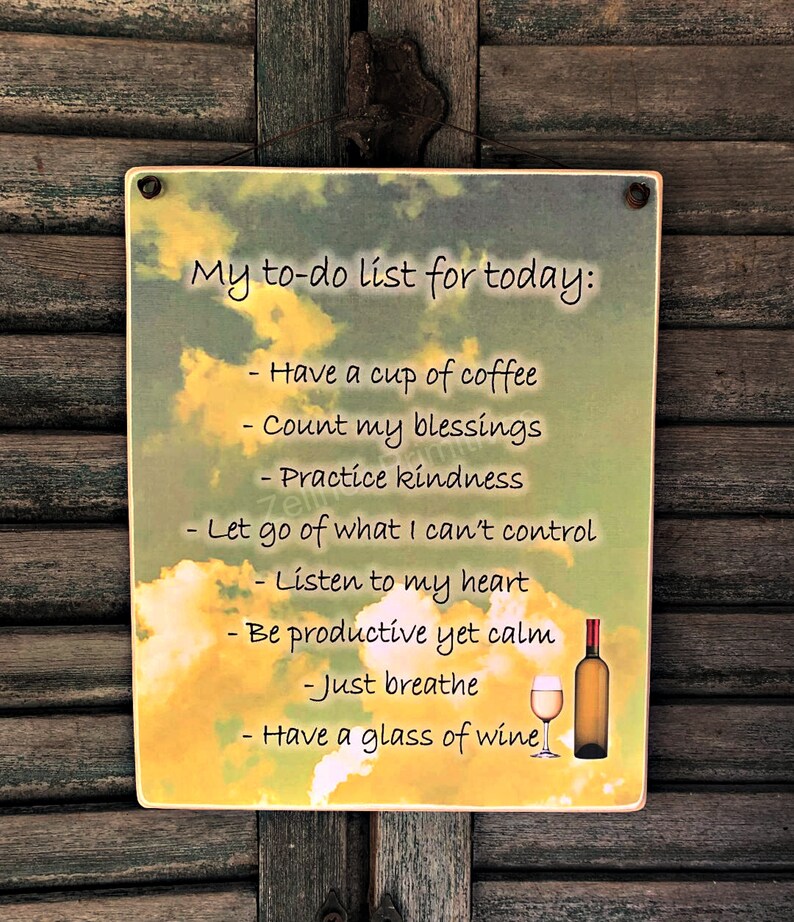 My to-do list for today:
- Have a cup of coffee
- Count my blessings
- Practice kindness
- Let go of what I can't control
- Listen to my heart
- Be productive yet calm
- Just breathe
- Have a glass of wine